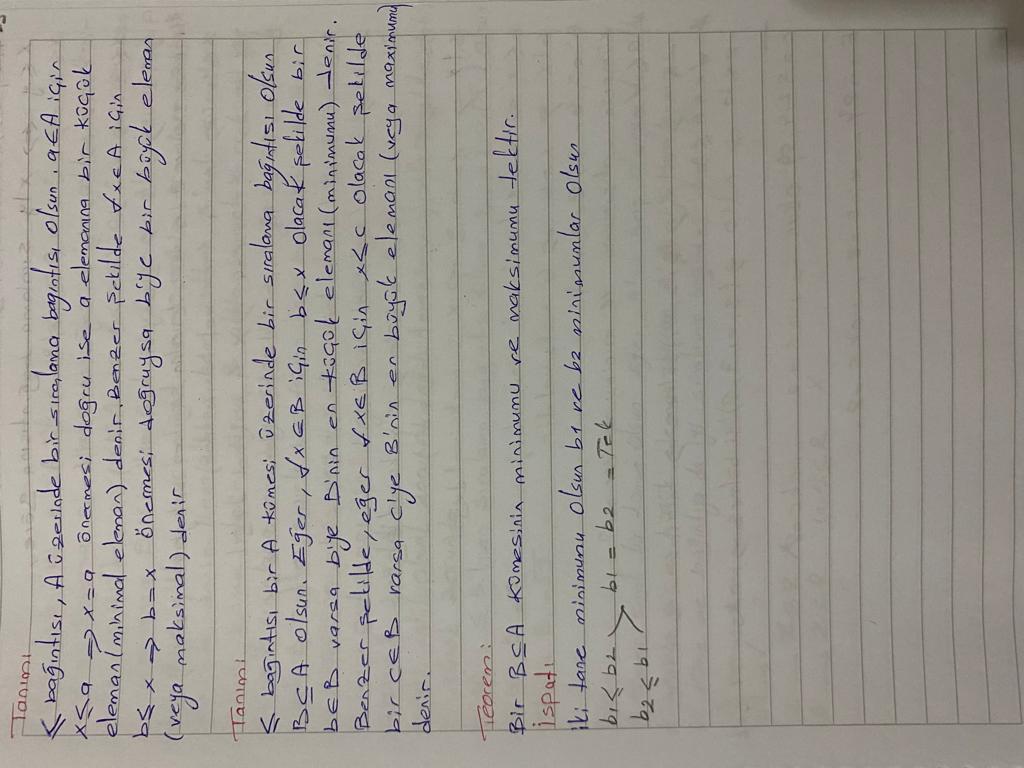 Tanım:
≤ bağıntısı, A üzerinde bir sıralama bagıntısı olsun. a∈A için
x≤a ⇒ x=a önermesi doğru ise a elemanına bir küçük
eleman (minimal eleman) denir. Benzer şekilde ∀x∈A için
b≤x ⇒ b=x önermesi doğruysa b'ye bir büyük eleman
(veya maksimal) denir
Tanım:
≤ bağıntısı bir A kümesi üzerinde bir sıralama bağıntısı olsun
B⊆A olsun. Eğer, ∀x∈B için b≤x olacak şekilde bir
b∈B varsa b'ye B'nin en küçük elemanı (minimumu) denir.
Benzer şekilde, eğer ∀x∈B için x≤c olacak şekilde
bir c∈B varsa c'ye B'nin en büyük elemanı (veya maximumu)
denir.
Teorem:
Bir B⊆A kümesinin minimumu ve maksimumu tektir.
İspat:
iki tane minimumu olsun b1 ve b2 minimumlar olsun
b1≤b2 > b1 = b2 = Tek
b2≤b1